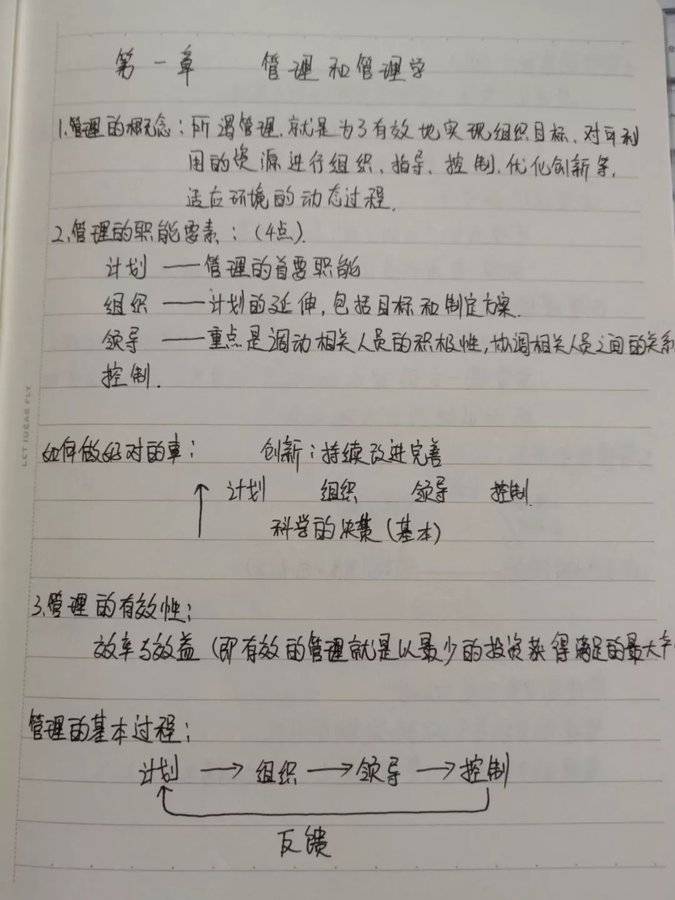 第一章 管理和管理学
1.管理的概念:所谓管理,就是为了有效地实现组织目标、对可利
用的资源进行组织、指导、控制、优化创新等,
适应环境的动态过程.
2.管理的职能要素:(4点).
计划 —— 管理的首要职能
组织 —— 计划的延伸,包括目标和制定方案.
领导 —— 重点是调动相关人员的积极性,协调相关人员之间的关系
控制.
如何做好对的事: 创新:持续改进完善
↑ 计划 组织 领导 控制
科学的决策(基本)
3.管理的有效性:
效率与效益(即有效的管理就是以最少的投资获得满足的最大
管理的基本过程:
计划 → 组织 → 领导 → 控制
反馈
LET IDEAS FLY